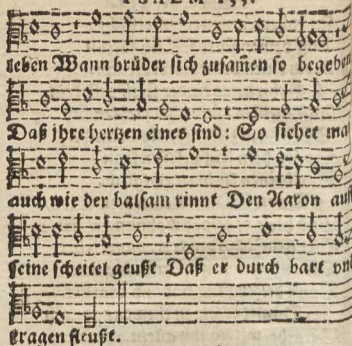 PSALM 133.
leben Wann brüder sich zusam̃en so begeben
Daß jhre hertzen eines sind: So siehet man
auch wie der balsam rinnt Den Aaron auff
seine scheitel geußt Daß er durch bart vnd
kragen fleußt.